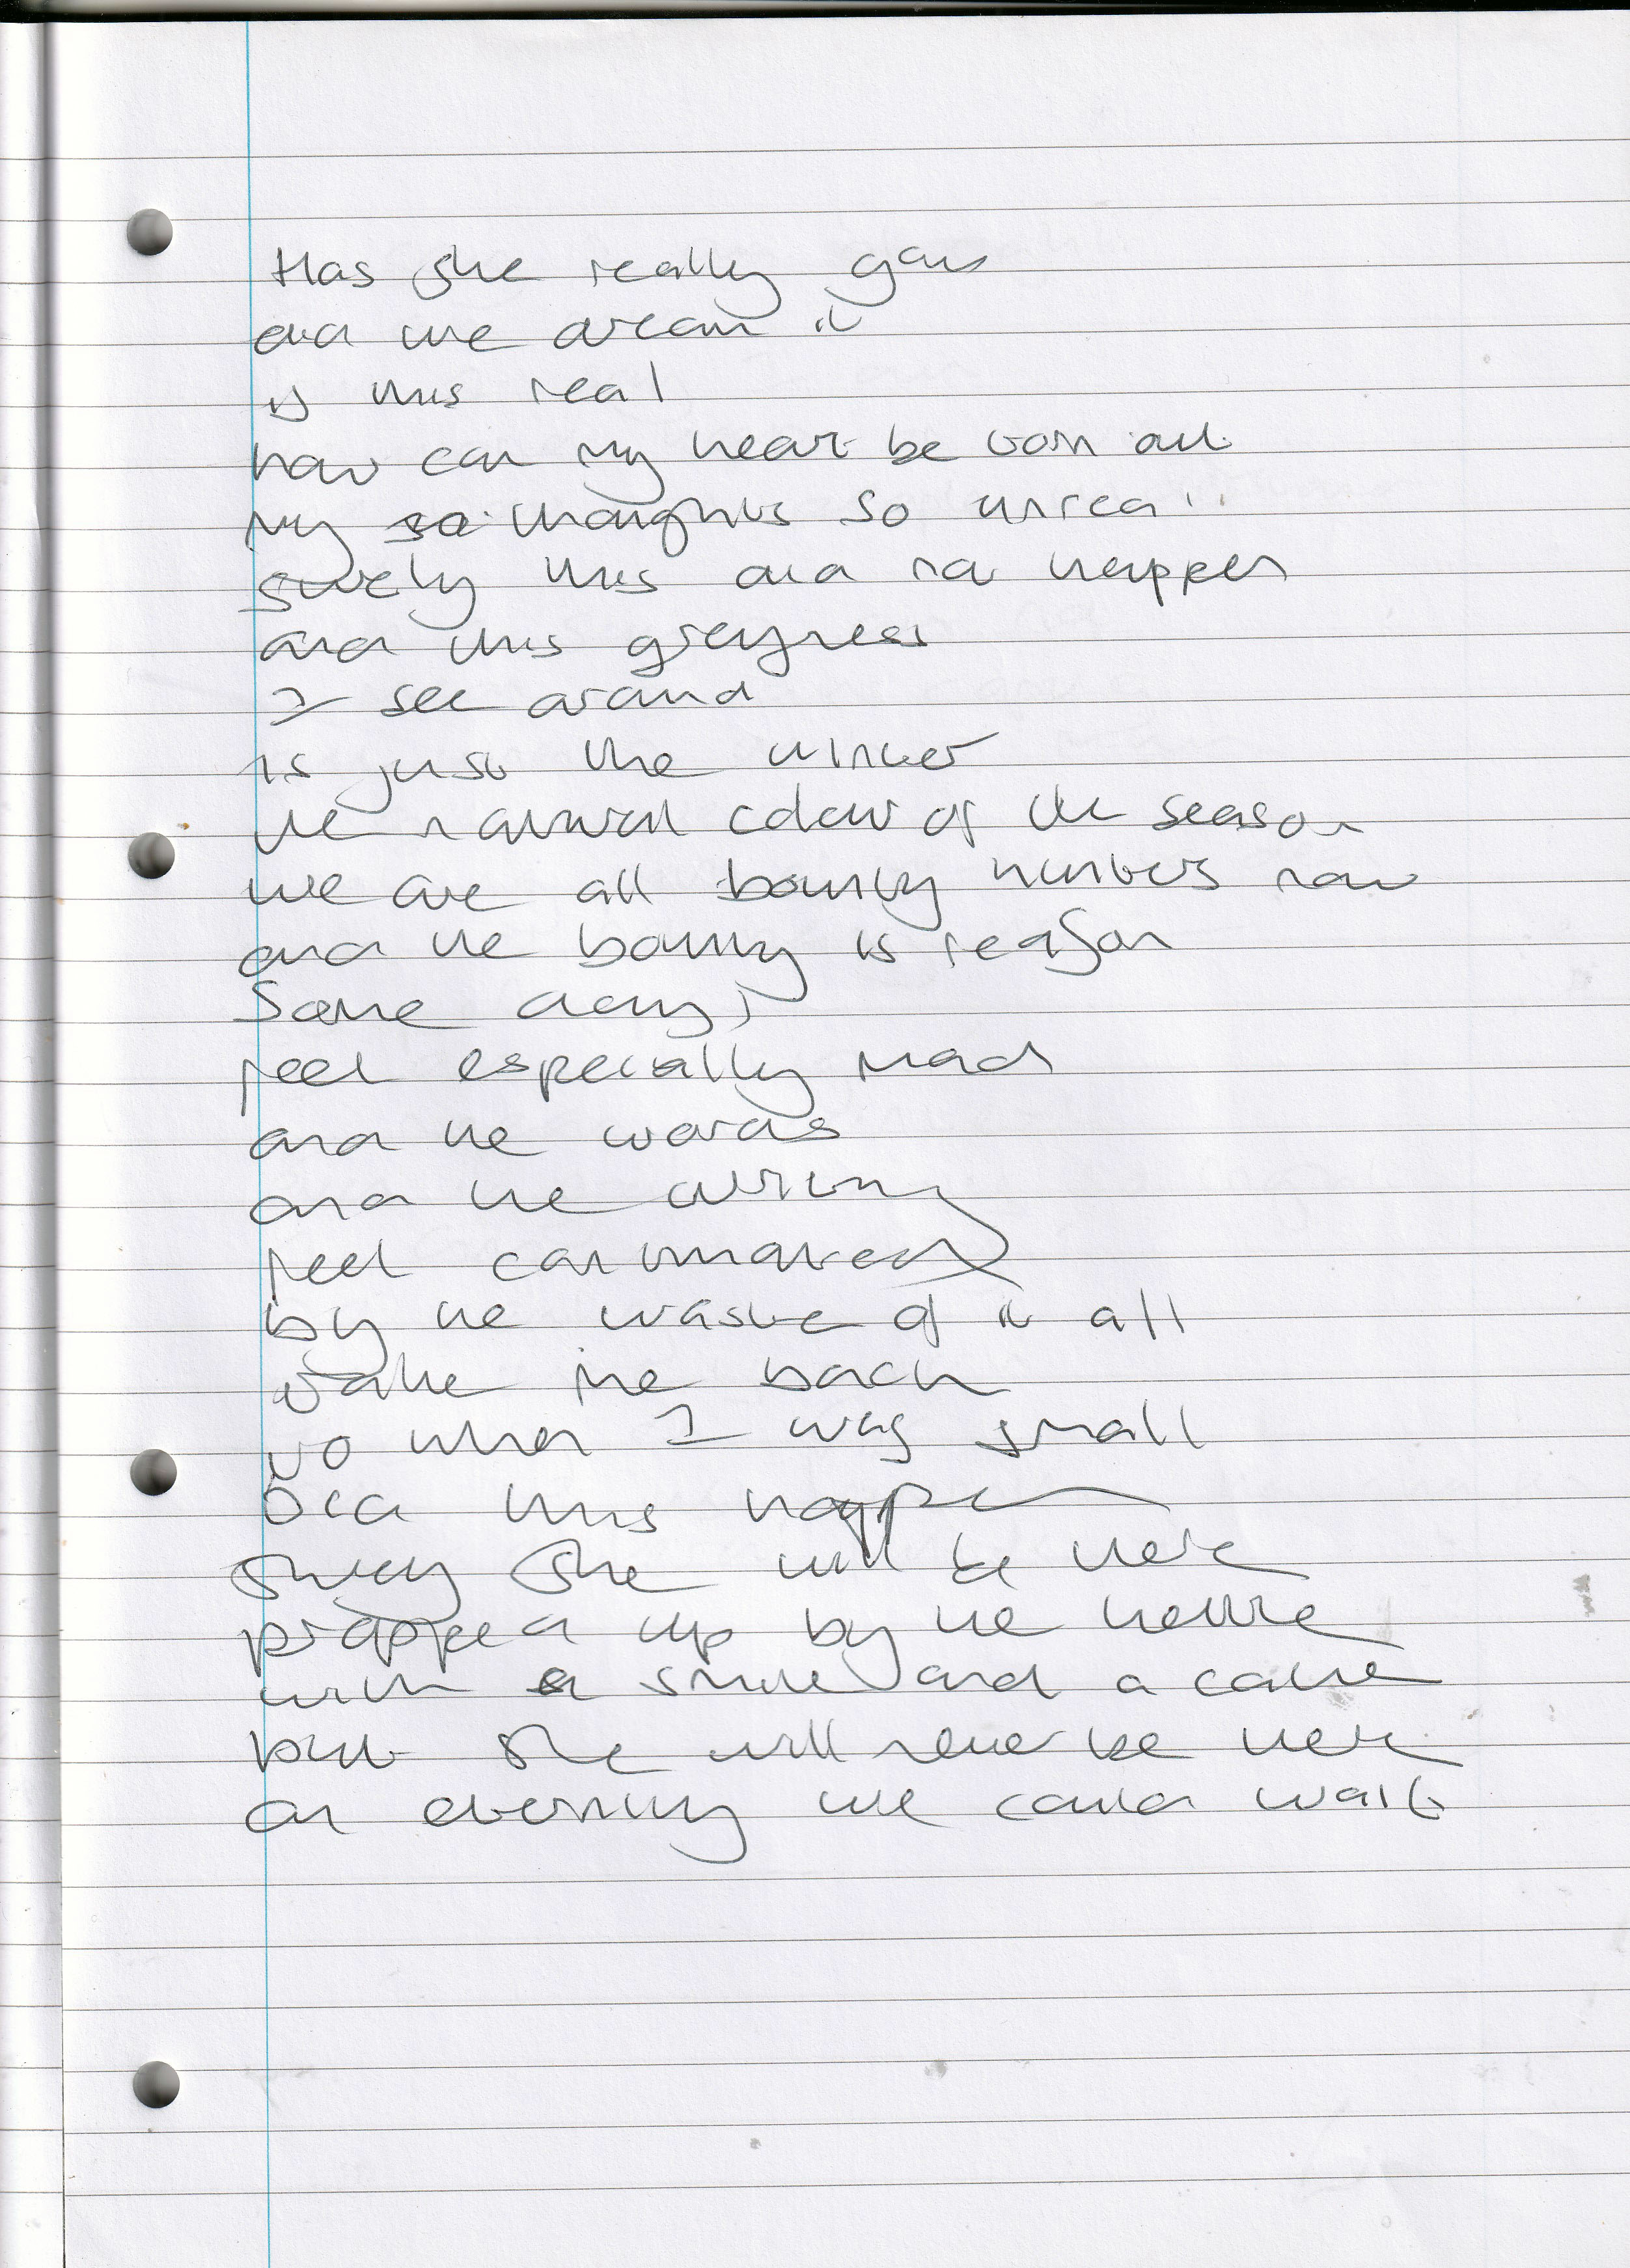 Has she really gone
did we dream it
is this real
how can my heart be torn out
my so thoughts so unreal
surely this did not happen
and this greyness
I see around
is just the winter
the natural colour of the season
we are all bounty hunters now
and the bounty is reason
Some days
feel especially mad
and the words
and the writing
feel contaminated
by the waste of it all
take me back
to when I was small
Did this happen
surely she will be here
propped up by the kettle
with a smile and a cake
but she will never be here
an evening we could wait